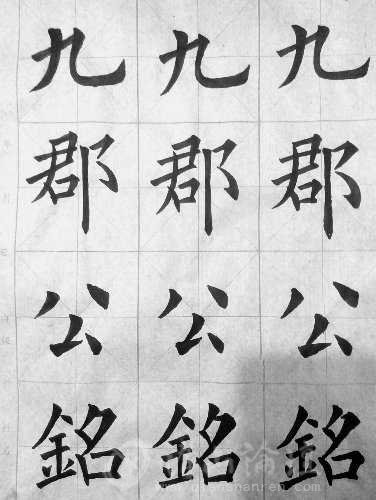 九九九
郡郡郡
公公公
銘銘銘